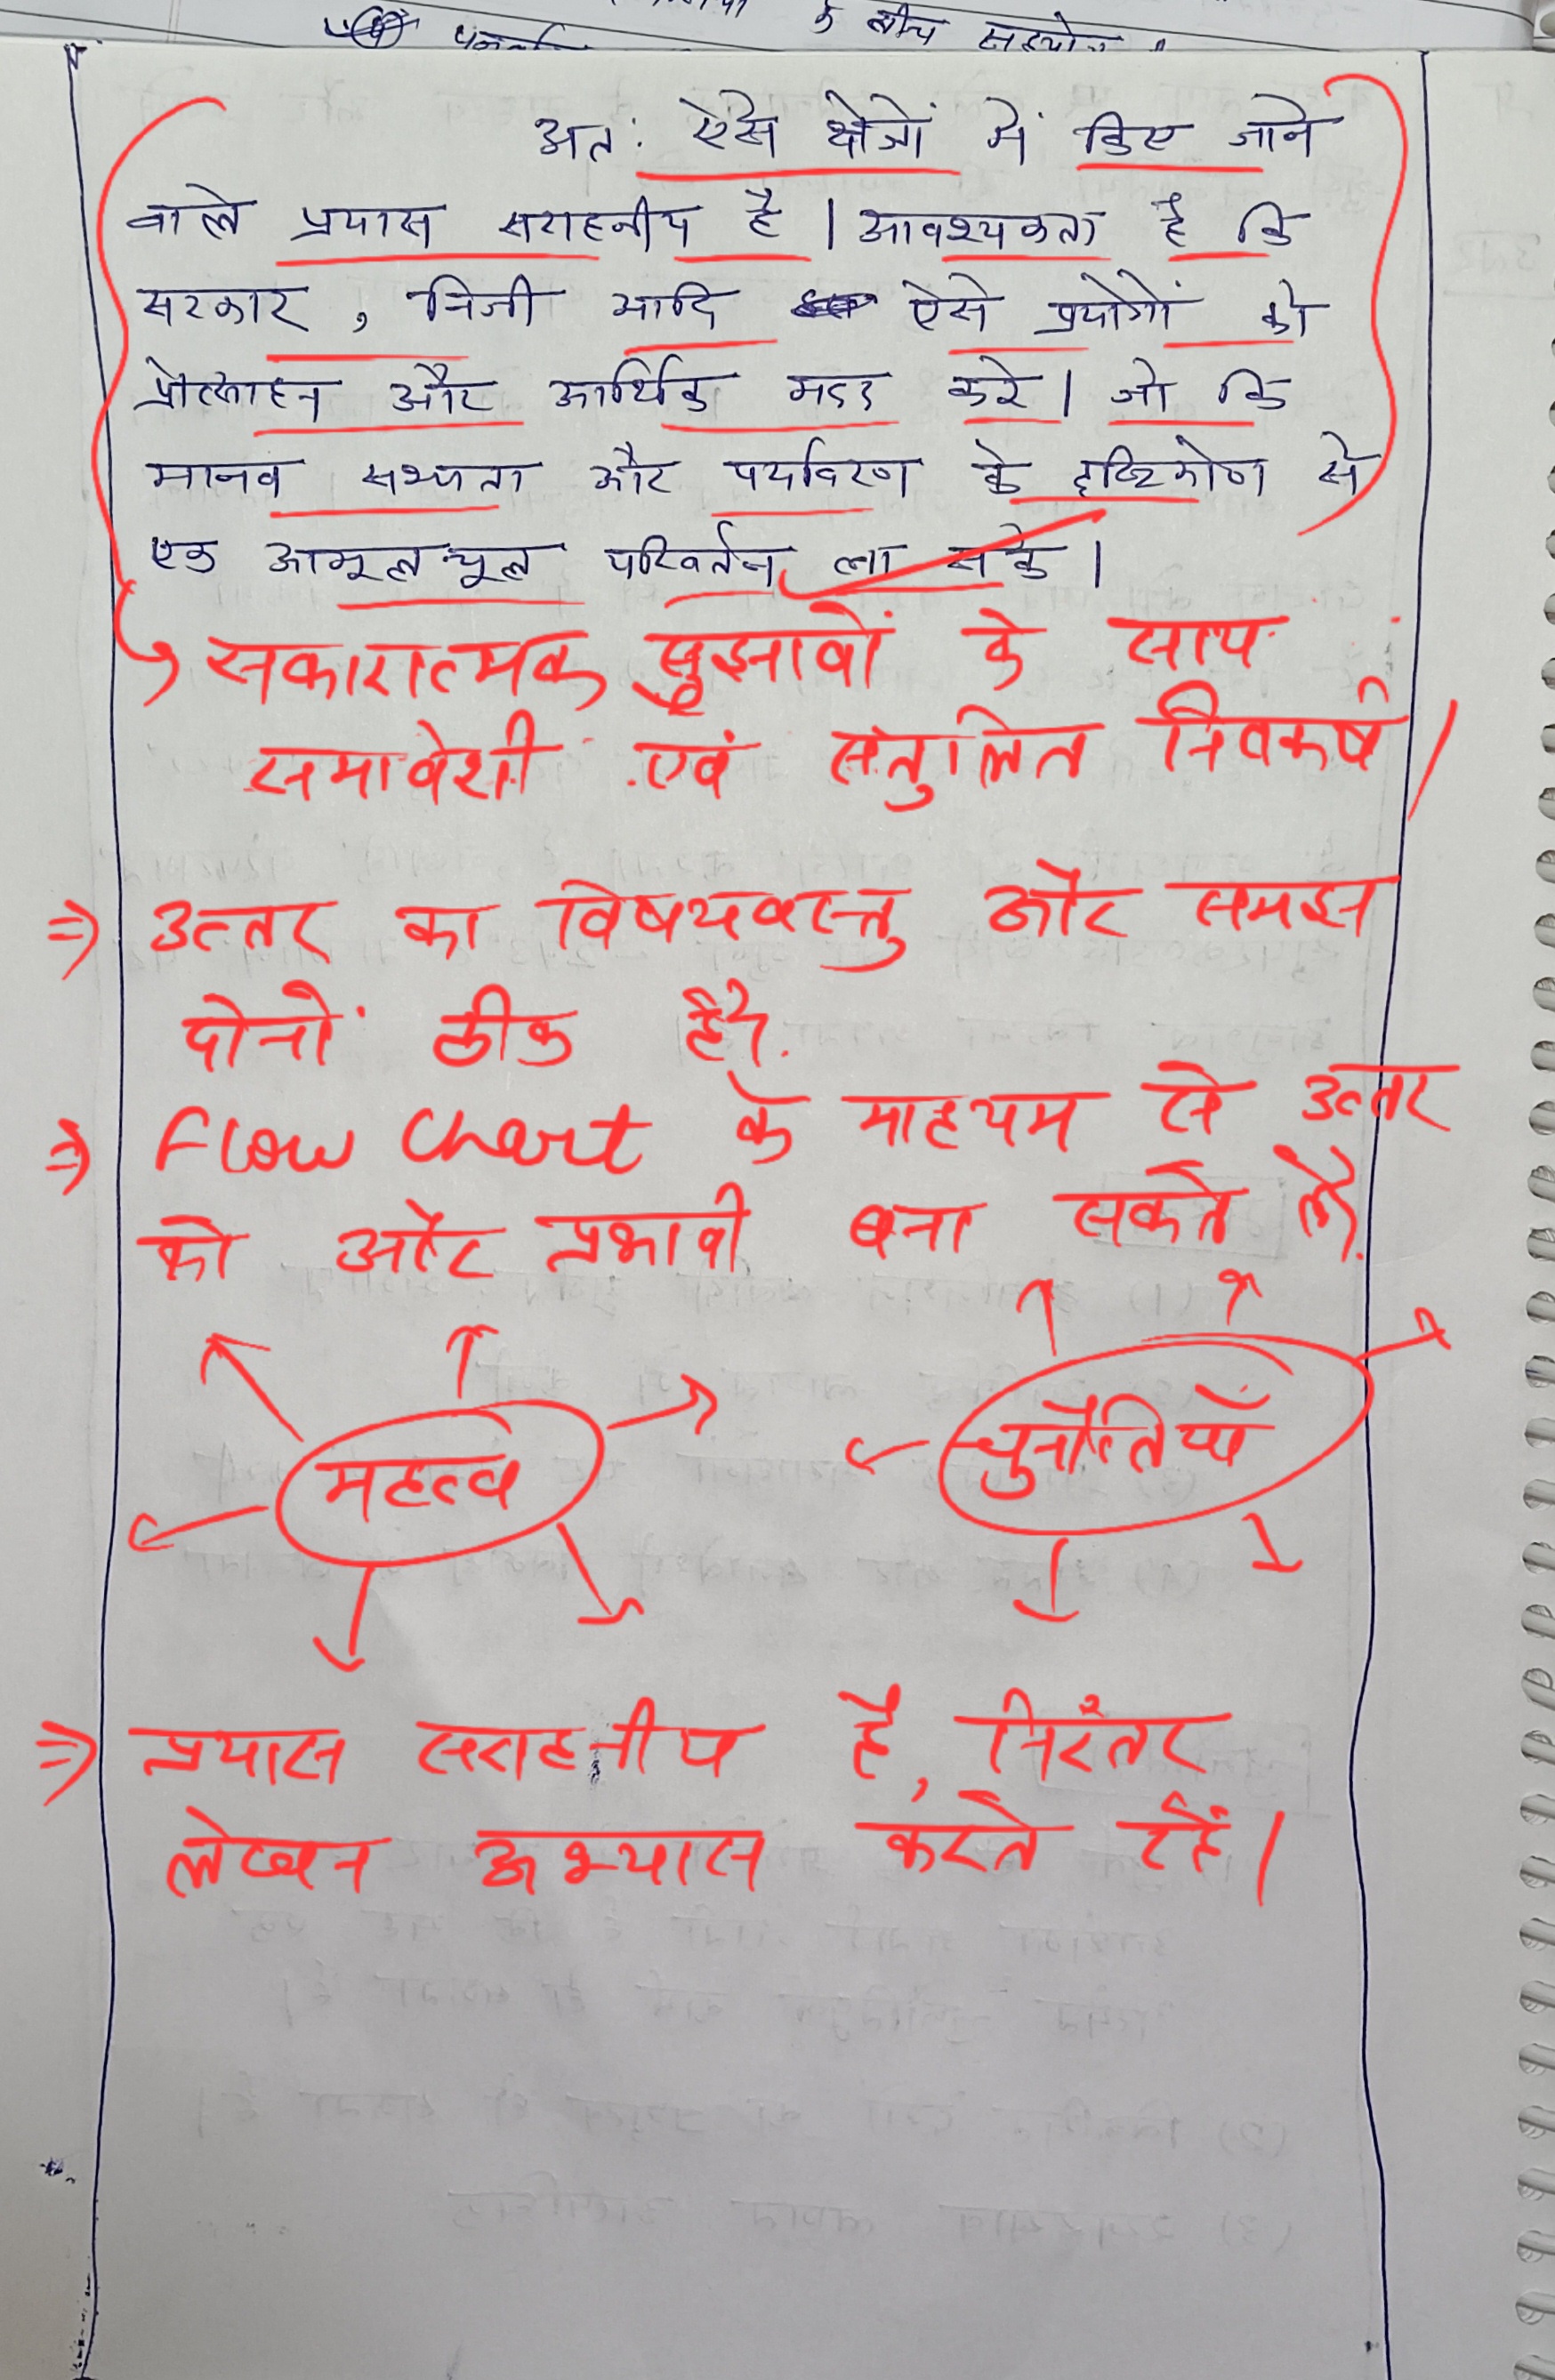 के बीच सहयोग
अत: ऐसे क्षेत्रों में किए जाने
वाले प्रयास सराहनीय है। आवश्यकता है कि
सरकार, निजी आदि ऐसे प्रयोगों को
प्रोत्साहन और आर्थिक मदद करे। जो कि
मानव सभ्यता और पर्यावरण के दृष्टिकोण से
एक आमूलचूल परिवर्तन ला सके।
सकारात्मक सुझावों के साथ
समावेशी एवं संतुलित निष्कर्ष।
⇒ उत्तर का विषयवस्तु और समझ
दोनों ठीक है।
⇒ Flow Chart के माध्यम से उत्तर
को और प्रभावी बना सकते हैं.
महत्व
चुनौतियाँ
⇒ प्रयास सराहनीय है, निरंतर
लेखन अभ्यास करते रहें।